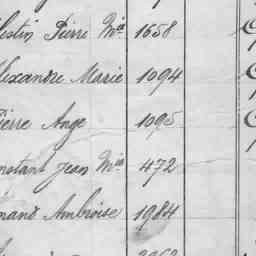 lestin Pierre Mie 1658
lexandre Marie 1094
ierre Ange 1095
nstant Jean Mie 472
inand Ambroise 1984